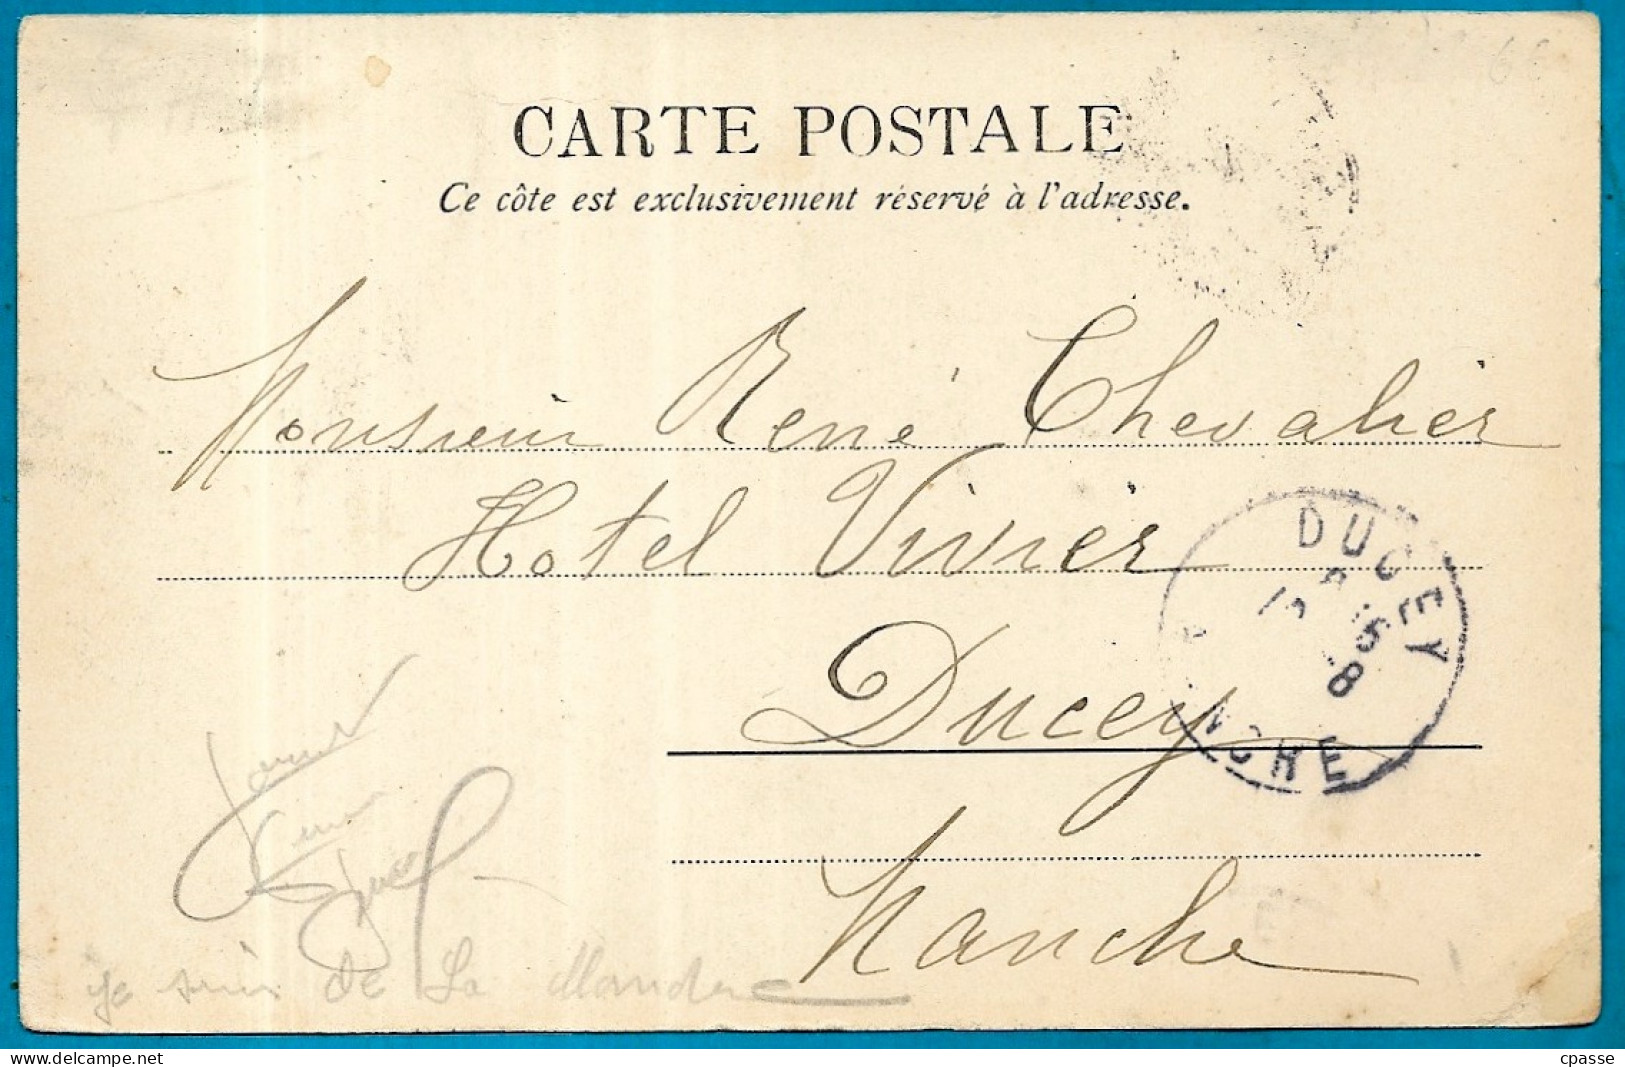 CARTE POSTALE
Ce côte est exclusivement réservé à l'adresse.
Monsieur René Chevalier
Hotel Vivier
Ducey
Manche
DUCEY
je suis de la
cpasse
www.delcampe.net